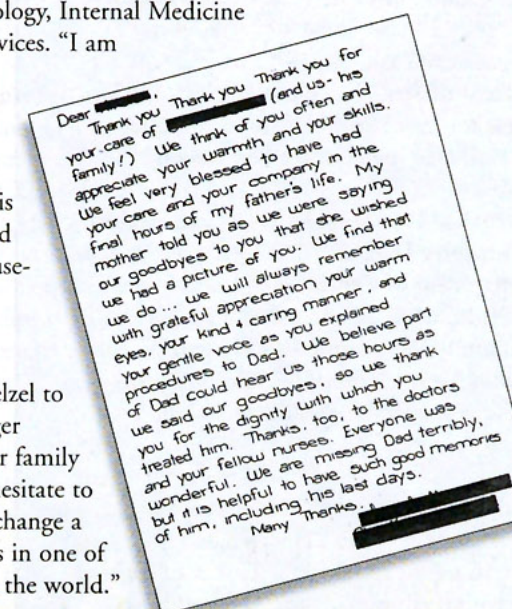 ology, Internal Medicine
vices. “I am
is
d
use-
elzel to
ger
r family
esitate to
change a
s in one of
the world.”
Dear
Thank you Thank you Thank you for
your care of (and us - his
family!) We think of you often and
appreciate your warmth and your skills.
We feel very blessed to have had
your care and your company in the
final hours of my father's life. My
mother told you as we were saying
our goodbyes to you that she wished
we had a picture of you. We find that
we do ... we will always remember
with grateful appreciation your warm
eyes, your kind + caring manner, and
your gentle voice as you explained
procedures to Dad. We believe part
of Dad could hear us those hours as
we said our goodbyes, so we thank
you for the dignity with which you
treated him. Thanks, too, to the doctors
and your fellow nurses. Everyone was
wonderful. We are missing Dad terribly,
but it is helpful to have such good memories
of him, including his last days.
Many Thanks,